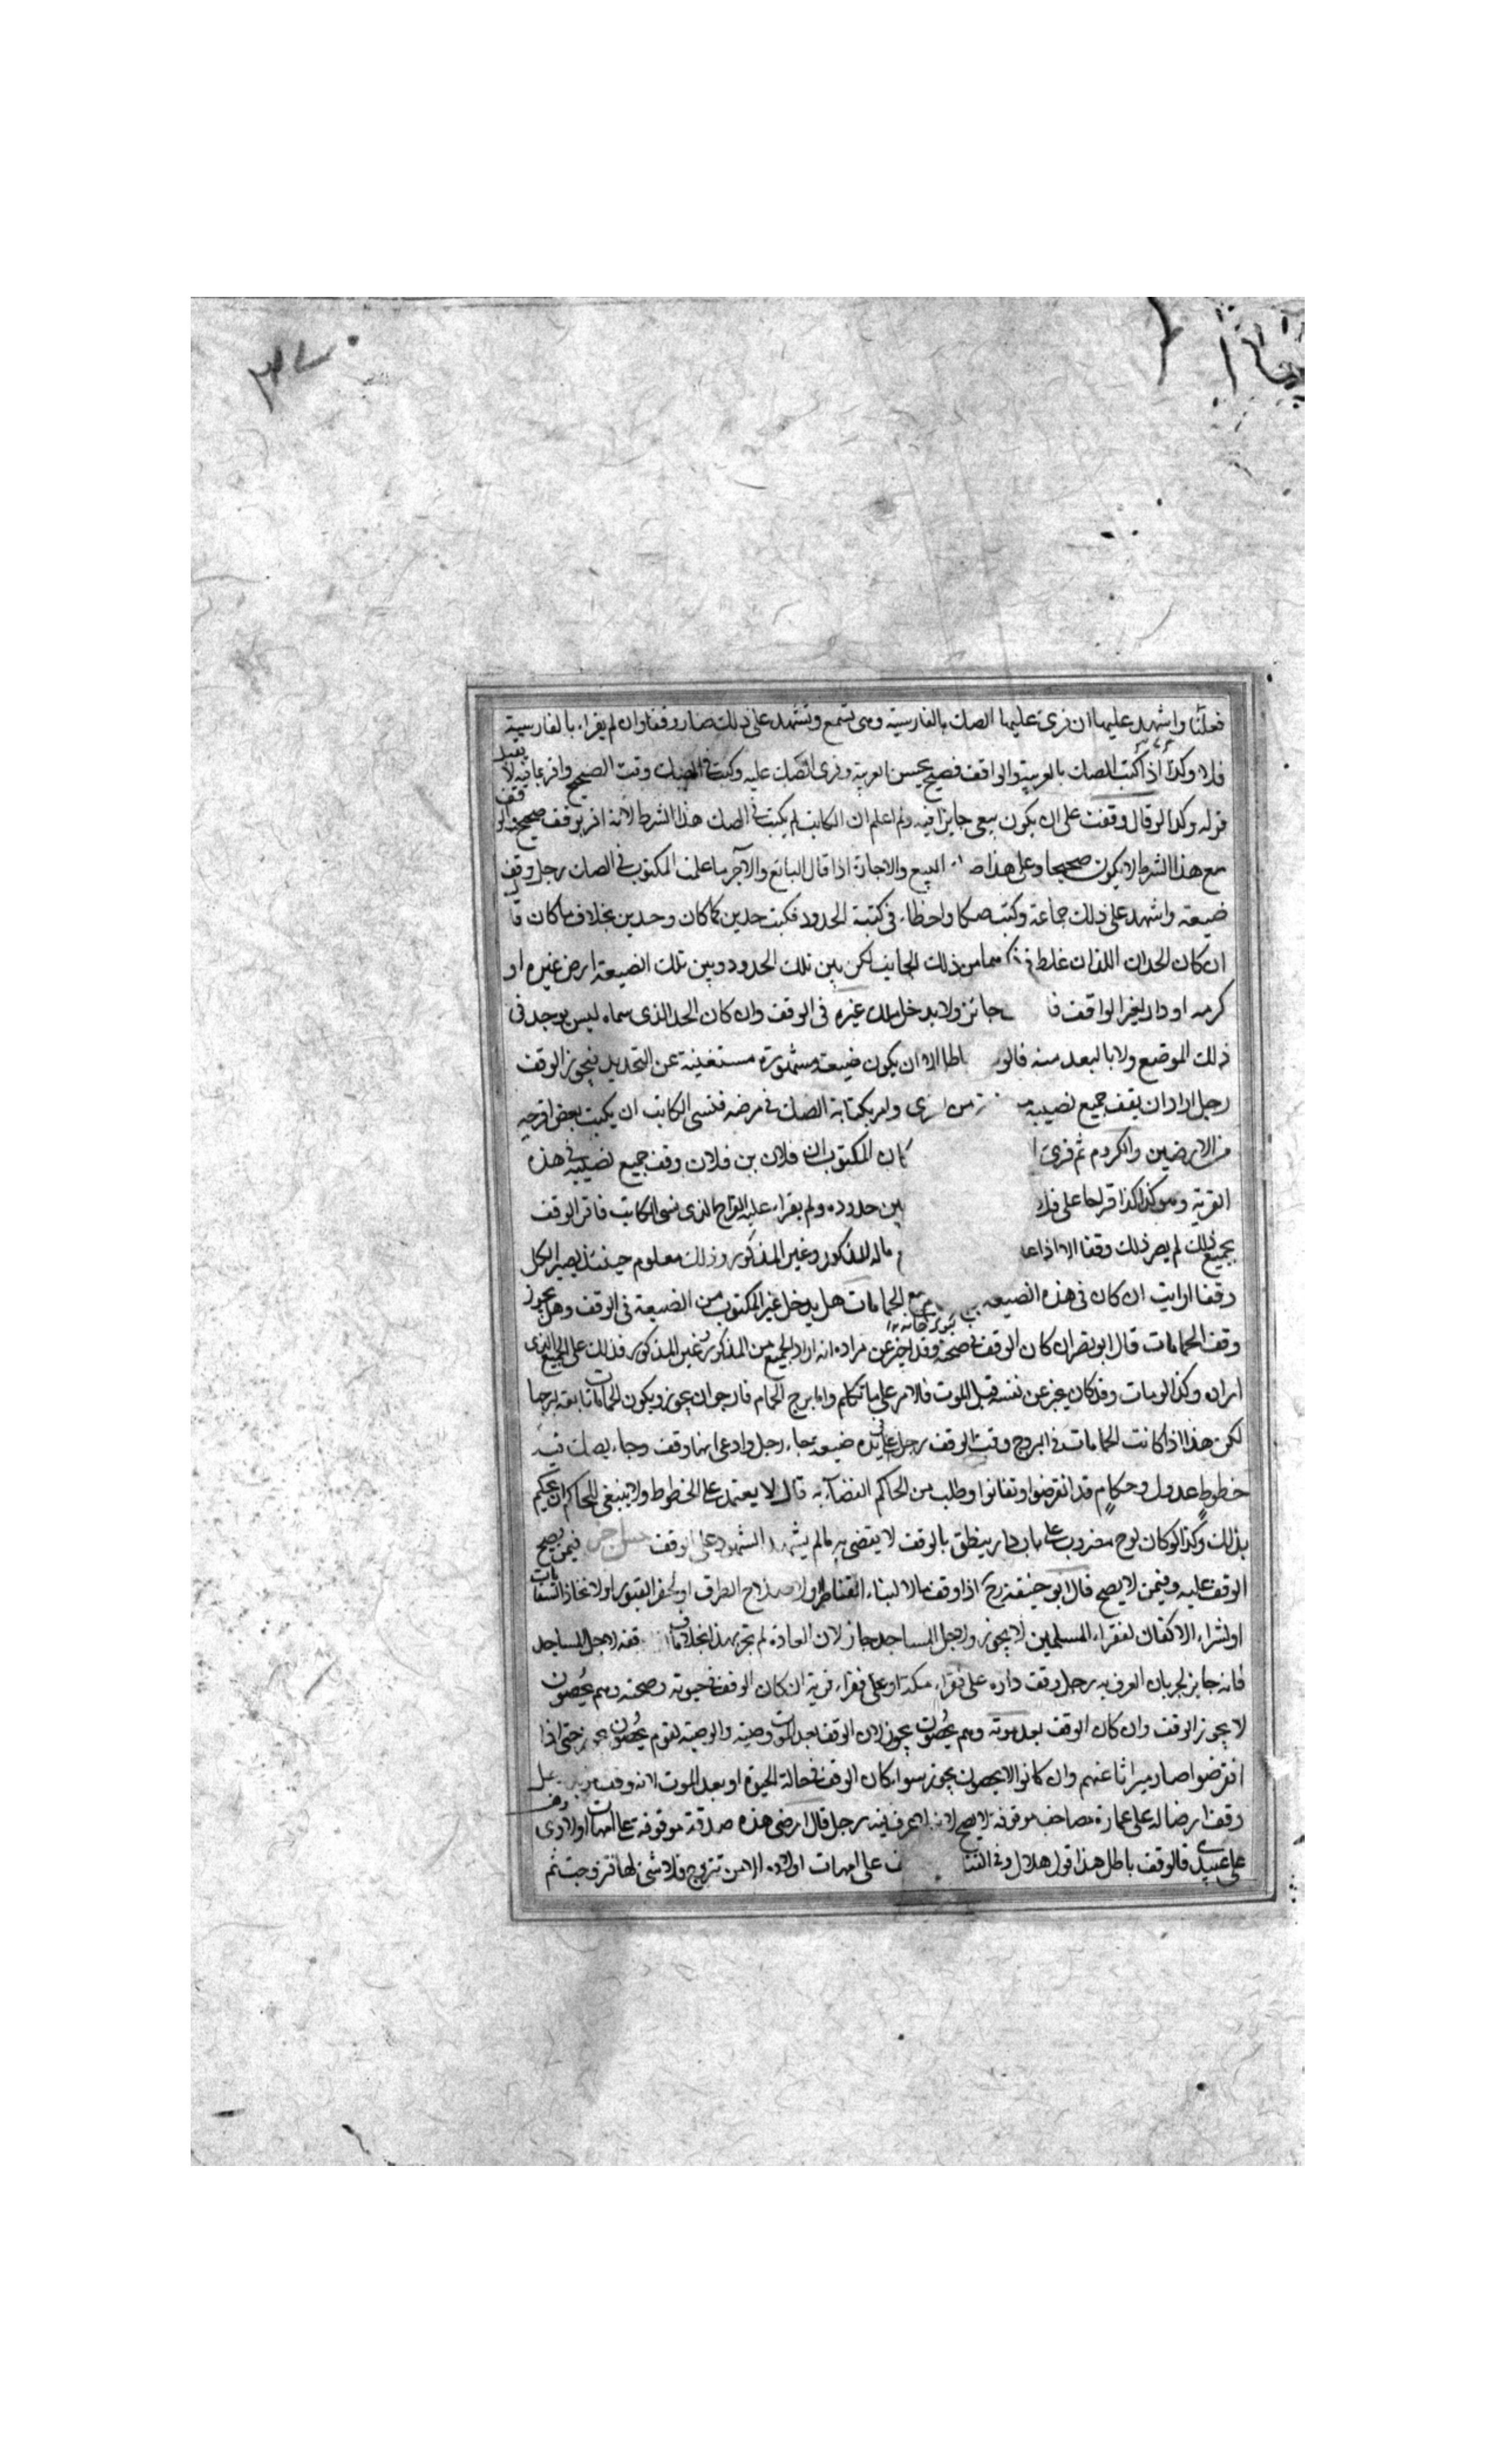 فعلنا واشهد عليها ان قرئ عليها الصك بالفارسية وهى تسمع وتشهد على ذلك صار وقفا وان لم يقراء بالفارسية
فلا وكذا اذا كتب الصك بالعربية والواقف فصيح يحسن العربية وقرئ الصك عليه وكتب فى الصك وقف الصحيح واقر بما فيه لا يقبل
قوله وكذا لو قال وقفت على ان يكون بيعى جايزا فيه ولم اعلم ان الكاتب لم يكتب فى الصك هذا الشرط لانه اقر بوقف صحيح والوقف
مع هذا الشرط لا يكون صحيحا وعلى هذا البيع والاجارة اذا قال البائع والآجر ما علمت المكتوب فى الصك رجل وقف
ضيعة واشهد على ذلك جماعة وكتب صكا واخطاء فى كتبة الحدود فكتب حدين كما كان وحدين بخلاف ما كان قال
ان كان الحدان اللذان غلط فى من ذلك الجانب لكن بين تلك الحدود وبين تلك الضيعة ارض غيره او
كرمه او دار لغير الواقف جائز ولا يدخل ملك غيره فى الوقف وان كان الحد الذى سماه ليس يوجد فى
ذلك الموضع ولا بالبعد منه فالو الا ان يكون ضيعة مشهورة مستغنية عن التحديد فيجوز الوقف
رجل اراد ان يقف جميع نصيبه من وامر بكتابة الصك فى مرضه فنسى الكاتب ان يكتب بعض اقرحه
من الارضين والكروم ثم قرئ ا كان المكتوب ان فلان بن فلان وقف جميع نصيبه فى هذه
القرية وهو كذا كذا قراحا على فلا بين حدوده ولم يقراء عليه القراح الذى نسى الكاتب فاقر الوقف
بجميع ذلك لم يصر ذلك وقفا الا اذا ماله المذكور وغير المذكور وذلك معلوم حينئذ يصير الكل
وقفا ارايت ان كان فى هذه الضيعة الحمامات هل يدخل غير المكتوب من الضيعة فى الوقف وهل يجوز
وقف الحمامات قال ابو نصر ان كان الوقف فى صحته وقد اخبر عن مراده انه اراد الجميع من المذكور وغير المذكور فذلك على الجميع الذى
اراده وكذا لو مات وقد كان عن نفسه قبل الموت فالامر على ما تكلم واما برج الحمام فارجو ان يجوز ويكون الحمامات تابعة لبرجها
لكن هذا اذا كانت الحمامات فى البروج وقت الوقف رجل فى يده ضيعة فجاء رجل وادعى انها وقف وجاء بصك فيه
خطوط عدول وحكام قد انقرضوا وتفانوا وطلب من الحاكم القضاء به قال لا يعتمد على الخطوط ولا ينبغى للحاكم ان يحكم
بذلك وكذا لو كان لوح مضروب على باب دار ينطق بالوقف لا يقضى به مالم يشهد الشهود على الوقف فيمن يصح
الوقف عليه وفيمن لا يصح قال ابو حنيفة رح اذا وقف مالا لبناء القناطر ولاصلاح الطرق او لحفر القبور او لاتخاذ السقايات
او لشراء الاكفان لفقراء المسلمين لا يجوز ولاجل المساجد جاز لان العادة لم تجر بهذا بخلاف ما لاجل المساجد
فانه جايز لجريان العرف به رجل وقف داره على فقراء مكة او على فقراء قرية ان كان الوقف فى حيوته وصحته وهم يحصون
لا يجوز الوقف وان كان الوقف بعد موته وهم يحصون يجوز لان الوقف بعد الموت وصية والوصية لقوم يحصون يجوز حتى اذا
انقرضوا صار ميراثا عنهم وان كانوا لا يحصون يجوز سواء كان الوقف فى حالة الحيوة او بعد الموت لانه وقف
وقف ارضا له على عمارة مصاحف موقوفة لا يصح لانه لا عرف فيه رجل قال ارضى هذه صدقة موقوفة على امهات اولادى
على عبيدى فالوقف باطل هذا قول هلال وفى الفتا على امهات اولاده الا من تزوج فلا شئ لها فتزوجت ثم